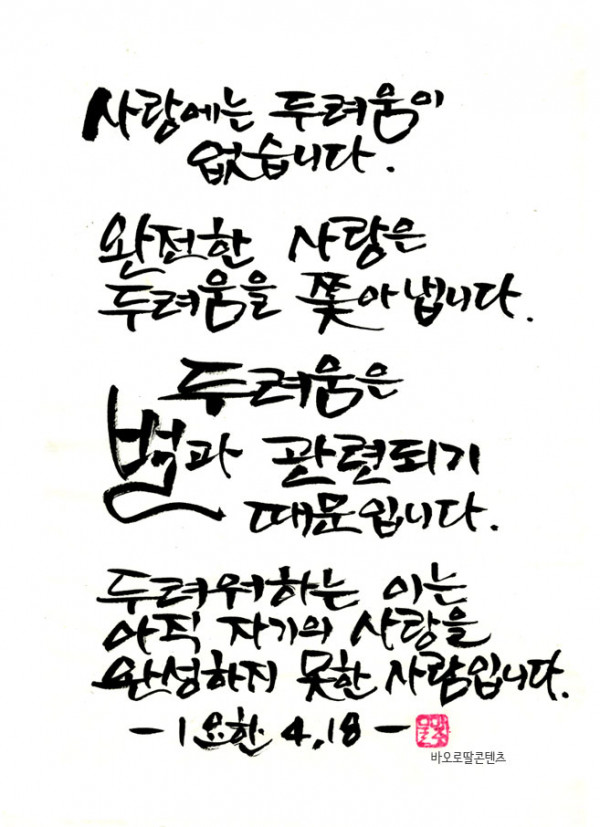 사랑에는 두려움이
없습니다.
완전한 사랑은
두려움을 쫓아냅니다.
두려움은
벌과 관련되기
때문입니다.
두려워하는 이는
아직 자기의 사랑을
완성하지 못한 사람입니다.
- 1 요한 4,18 -
바오로딸콘텐츠